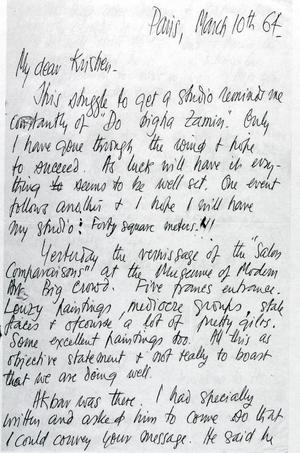 Paris, March 10th 64.
My dear Krishen -
This struggle to get a studio reminds me
constantly of "Do Bigha Zamin". Only
I have gone through the wringer & hope
to succeed. As luck will have it every-
thing seems to be well set. One event
follows another & I hope I will have
my studio: Forty square meters!!
Yesterday the vernissage of the "Salon
Comparaisons" at the Museum of Modern
Art. Big crowd. Five francs entrance.
Lousy paintings, mediocre groups, stale
faces & ofcourse a lot of pretty girls.
Some excellent paintings too. All this as
objective statement & not really to boast
that we are doing well.
Akbar was there. I had specially
written and asked him to come so that
I could convey your message. He said he